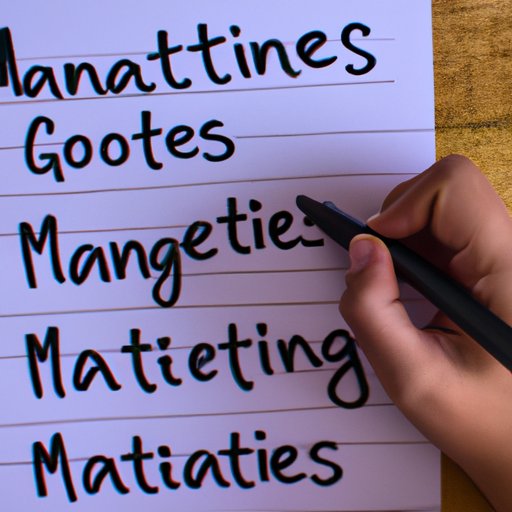 Manattines
Gootes
Mangeties
Matieting
Matiaties